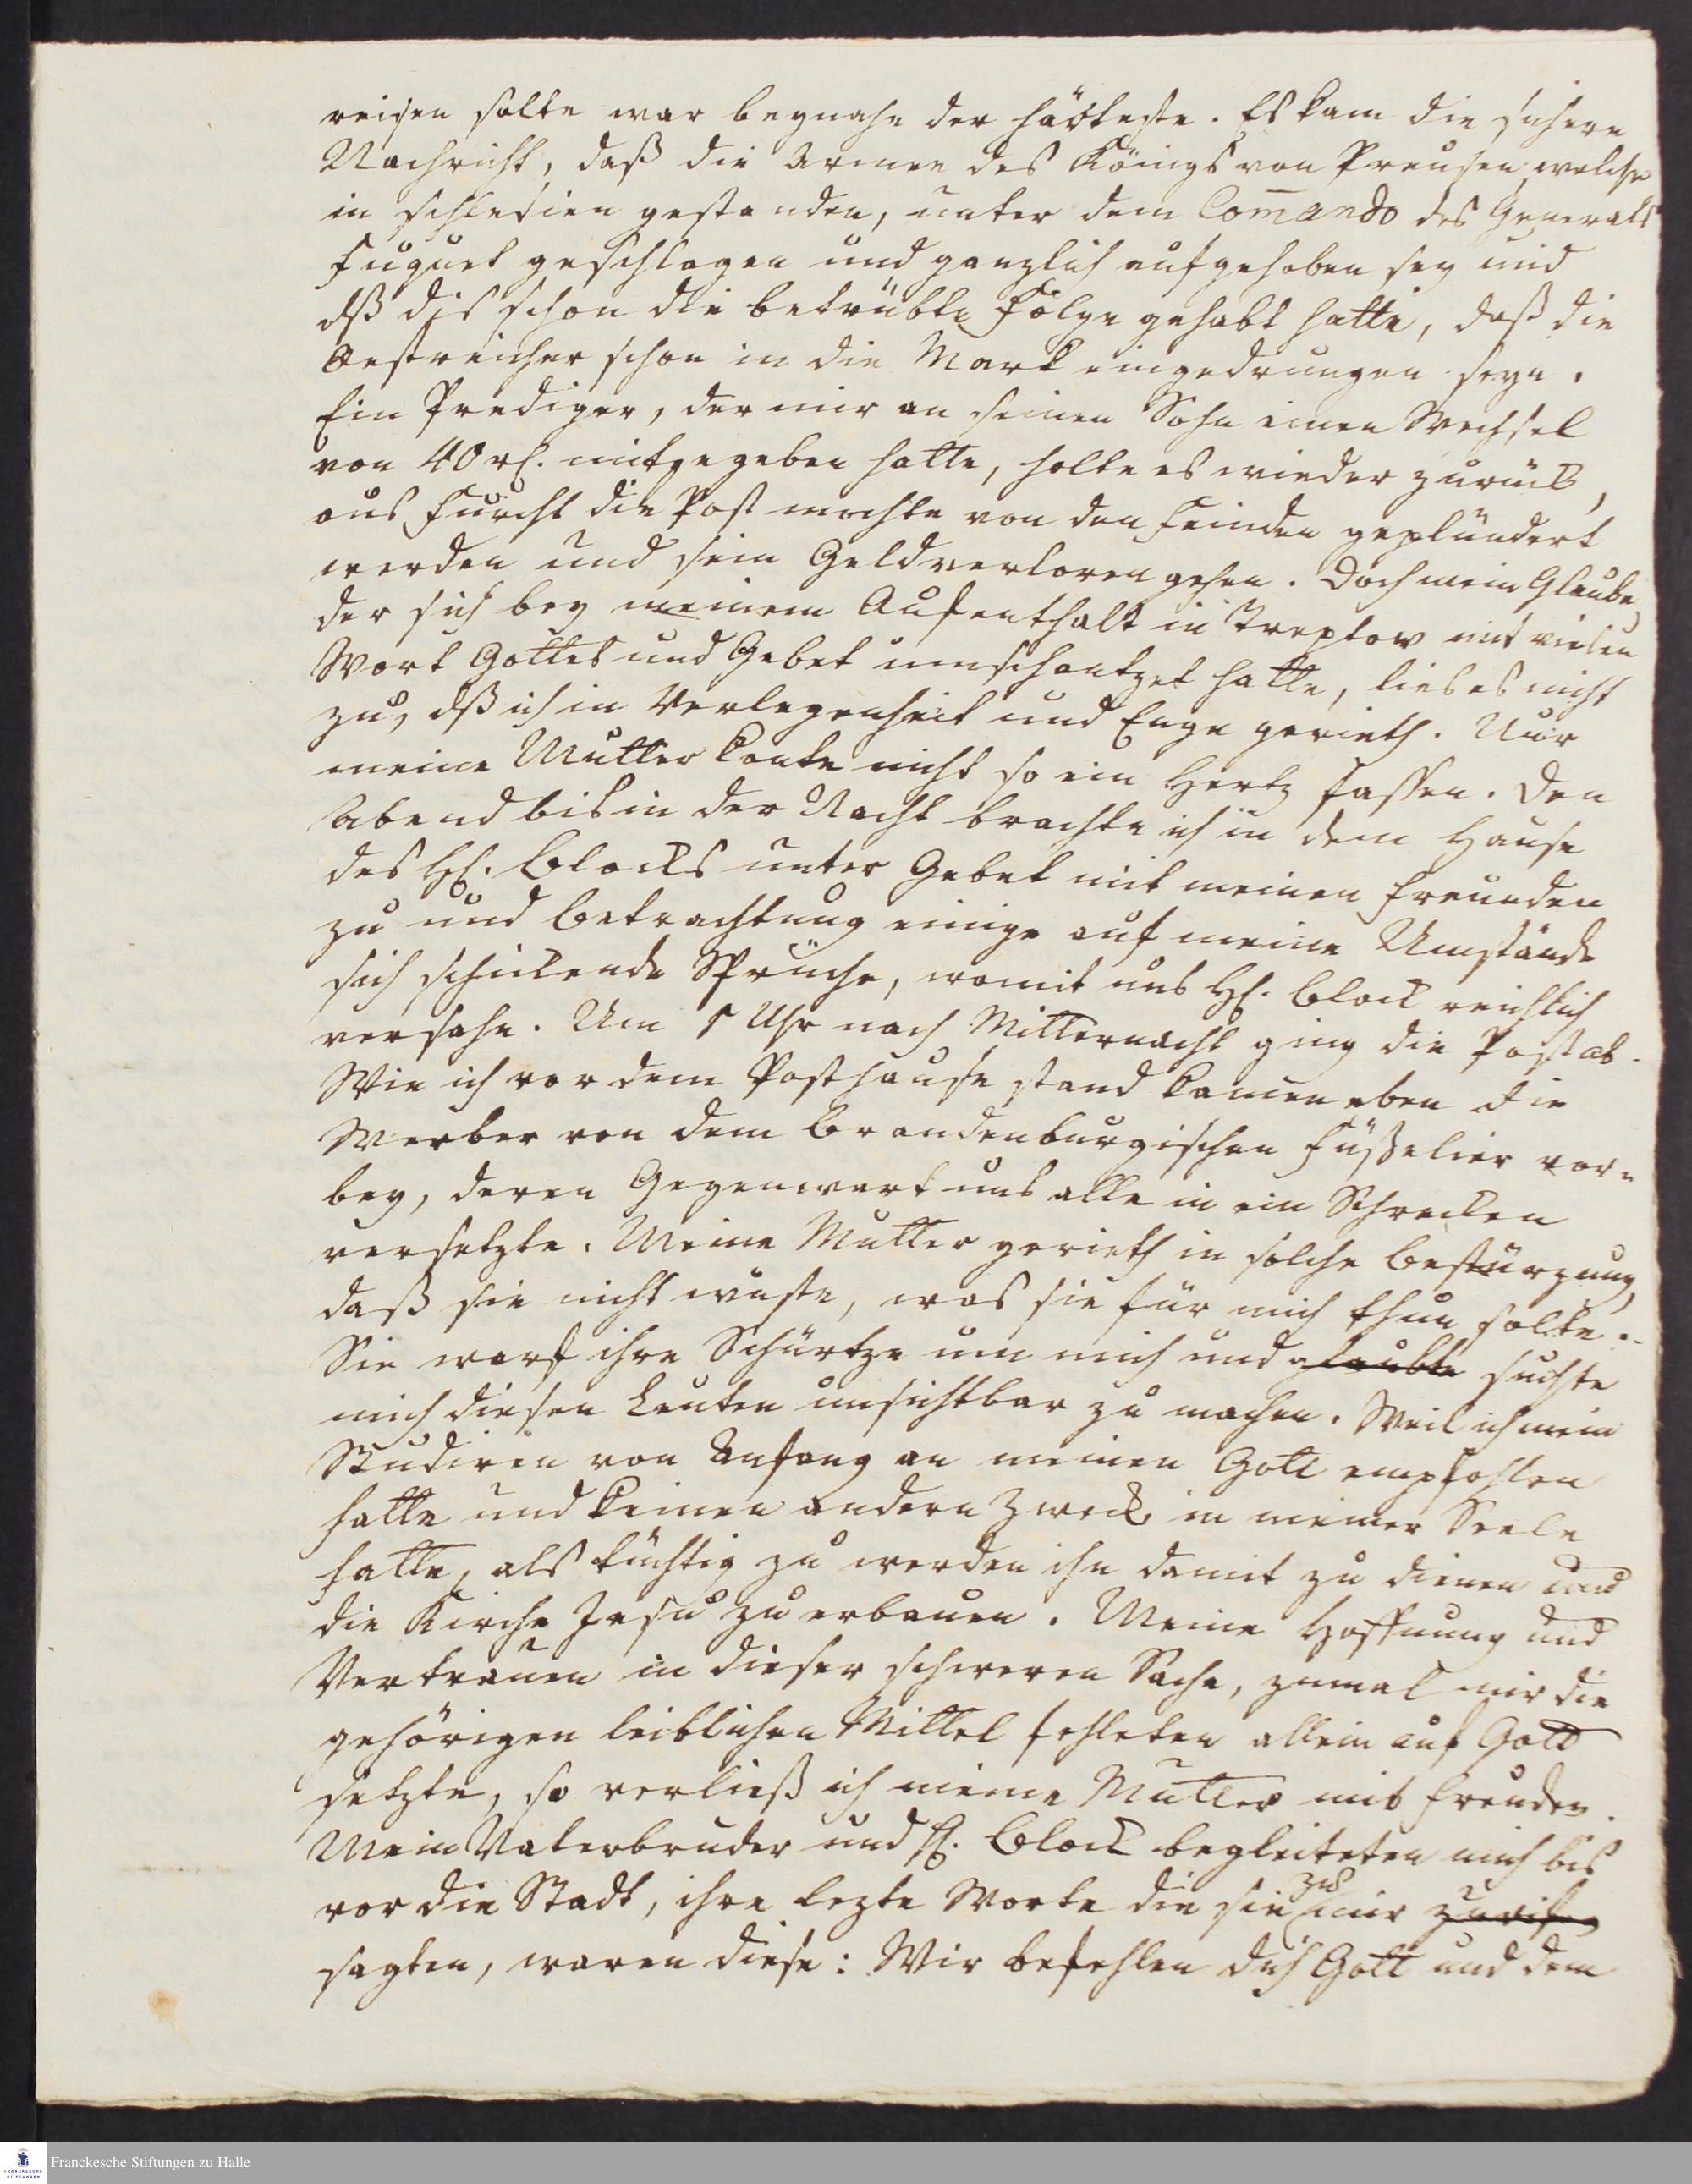 reisen solte war beynahe der härteste. Es kam die sichere
Nachricht, daß die Armee des Königs von Preusen, welche
in schlesien gestanden, unter dem Com̄ando des Generals
Fuquet geschlagen und gänzlich aufgehoben sey und
dß dis schon die betrübte Folge gehabt hatte, daß die
Oestreicher schon in die Mark eingedrungen seyn.
Ein Prediger, der mir an seinen Sohn einen Wechsel
von 40 rl. mitgegeben hatte, holte es wieder zurück,
aus Furcht die Post mochte von den Feinden geplündert
werden und sein Geld verloren gehen. Doch mein Glaube,
der sich bey meinem Aufenthalt in Treptow mit vielen
Wort Gottes und Gebet umschantzet hatte, lies es nicht
zu, dß ich in Verlegenheit und Enge gerieth. Nur
meine Mutter konte nicht so ein Hertz fassen. Den
Abend bis in der Nacht brachte ich in dem Hause
des H. Blocks unter Gebet mit meinen Freunden
zu und Betrachtung einige auf meine Umstände
sich schickende Sprüche, womit uns H. Block reichlich
versahe. Um 1 Uhr nach Mitternacht ging die Post ab.
Wie ich vor dem Posthause stand kamen eben die
Werber von dem Brandenburgischen Füßelier vor-
bey, deren Gegenwart uns alle in ein Schrecken
versetzte. Meine Mutter gerieth in solche Bestürzung,
daß sie nicht wuste, was sie für mich thun solte.
Sie warf ihre Schürtze um mich und glaubte suchte
mich diesen Leuten unsichtbar zu machen. Weil ich mein
Studiren von Anfang an meinen Gott empfohlen
hatte und keinen andern Zweck in meiner Seele
hatte, als tüchtig zu werden ihn damit zu dienen und
die Kirche Jesu zu erbauen. Meine Hoffnung und
Vertrauen in dieser schweren Sache, zumal mir die
gehörigen leiblichen Mittel fehleten allein auf Gott
setzte, so verließ ich meine Mutter mit Freuden.
Mein Vaterbruder und H. Block begleiteten mich bis
vor die Stadt, ihre lezte Worte die sie zu mir
sagten, waren diese: Wir befehlen dich Gott und dem
Franckesche Stiftungen zu Halle